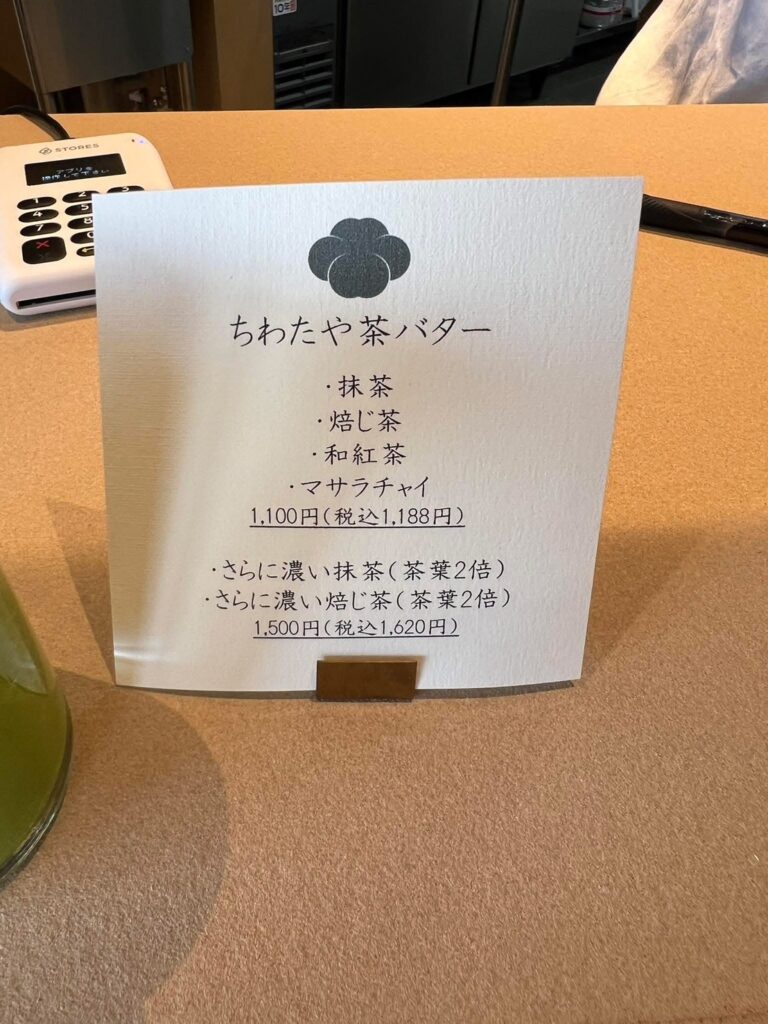 10年
STORES
アプリを
操作して下さい
1
2
3
4
5
7
8
ちわたや茶バター
・抹茶
・焙じ茶
・和紅茶
・マサラチャイ
1,100円(税込1,188円)
・さらに濃い抹茶(茶葉2倍)
・さらに濃い焙じ茶(茶葉2倍)
1,500円(税込1,620円)